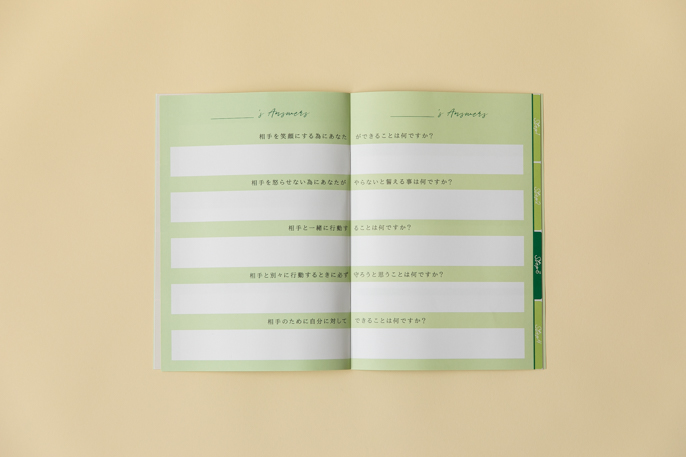 's Answers
's Answers
相手を笑顔にする為にあなたができることは何ですか？
相手を怒らせない為にあなたがやらないと誓える事は何ですか？
相手と一緒に行動することは何ですか？
相手と別々に行動するときに必ず守ろうと思うことは何ですか？
相手のために自分に対してできることは何ですか？